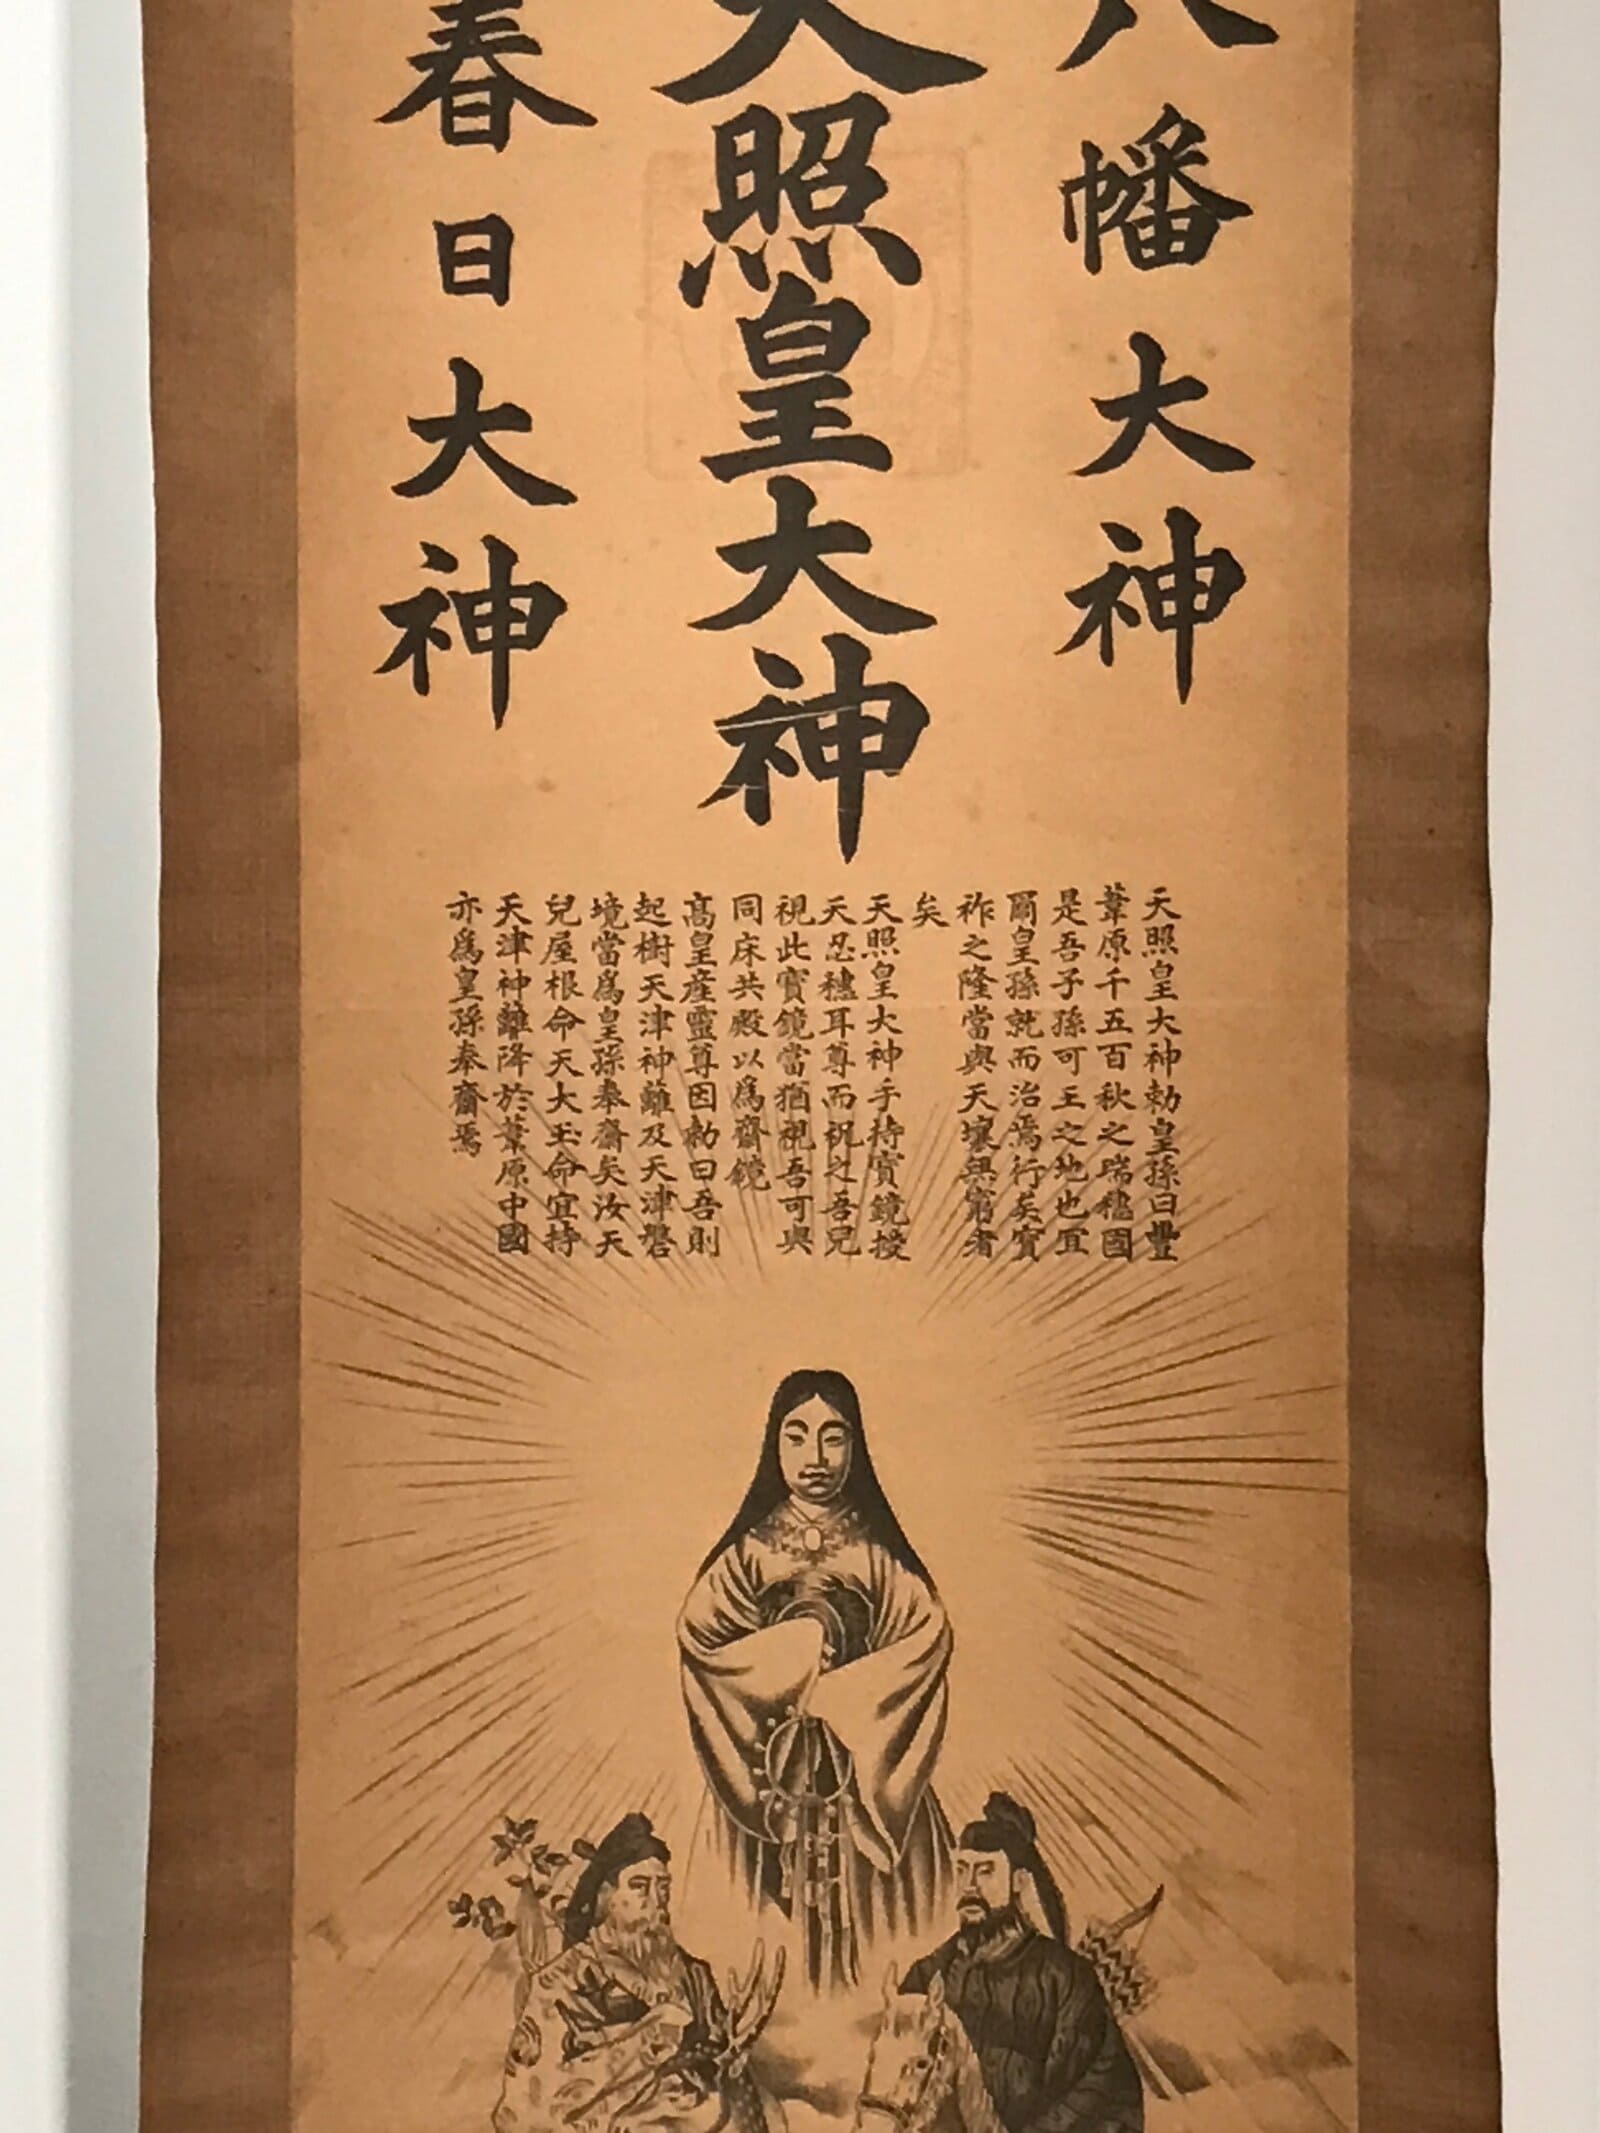 八幡大神
天照皇大神
春日大神
天照皇大神勅皇孫曰豐
葦原千五百秋之瑞穗國
是吾子孫可王之地也宜
爾皇孫就而治焉行矣寶
祚之隆當與天壤無窮者
矣
天照皇大神手持寶鏡授
天忍穗耳尊而祝之吾兒
視此寶鏡當猶視吾可與
同床共殿以爲齋鏡
高皇産靈尊因勅曰吾則
起樹天津神籬及天津磐
境當爲皇孫奉齋矣汝天
兒屋根命天大玉命宜持
天津神籬降於葦原中國
亦爲皇孫奉齋焉